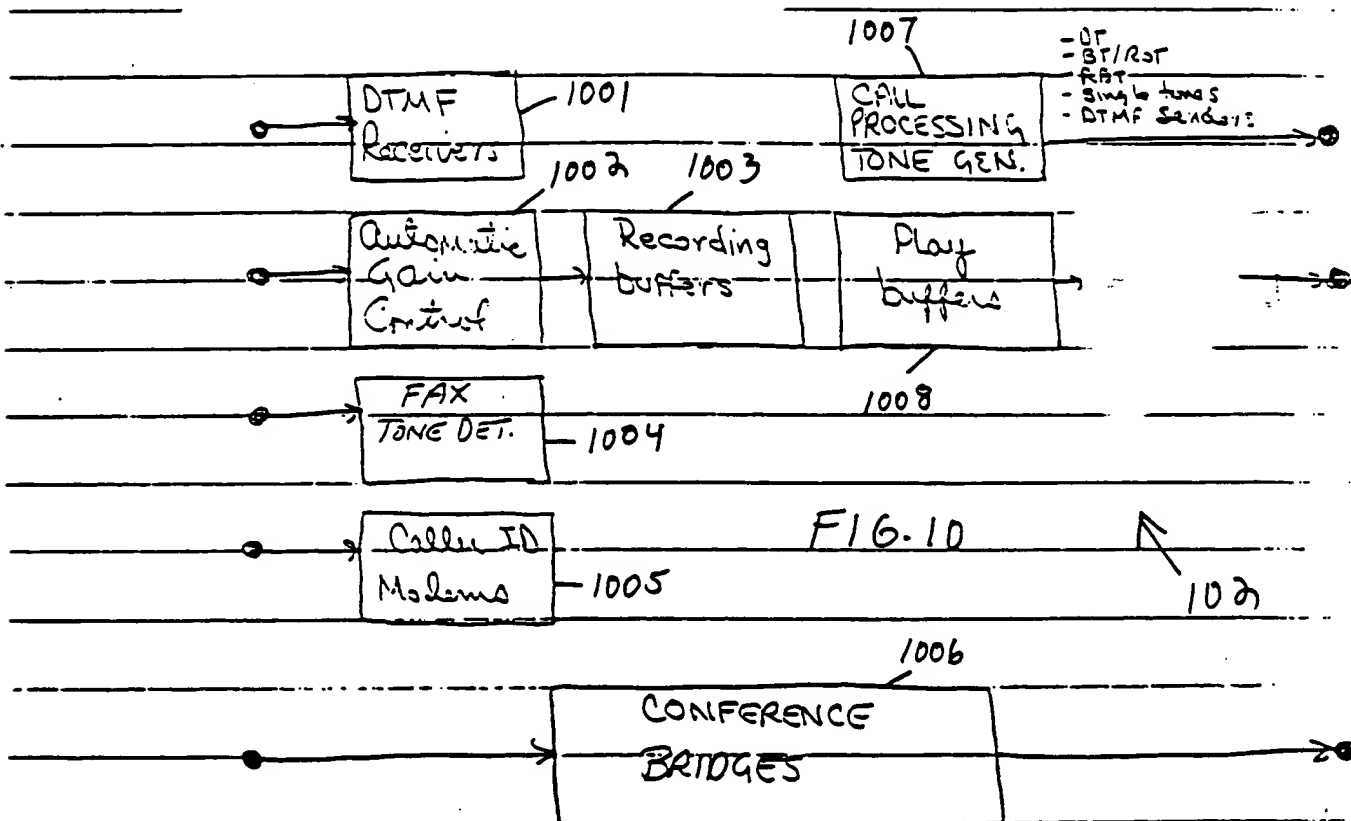 1007
- DT
- BT/ROT
- RBT
- Single tones
- DTMF Senders
DTMF
Receivers
1001
CALL
PROCESSING
TONE GEN.
1002
1003
Automatic
Gain
Control
Recording
buffers
Play
buffers
1008
FAX
TONE DET.
1004
Caller ID
Modems
1005
FIG. 10
102
1006
CONFERENCE
BRIDGES